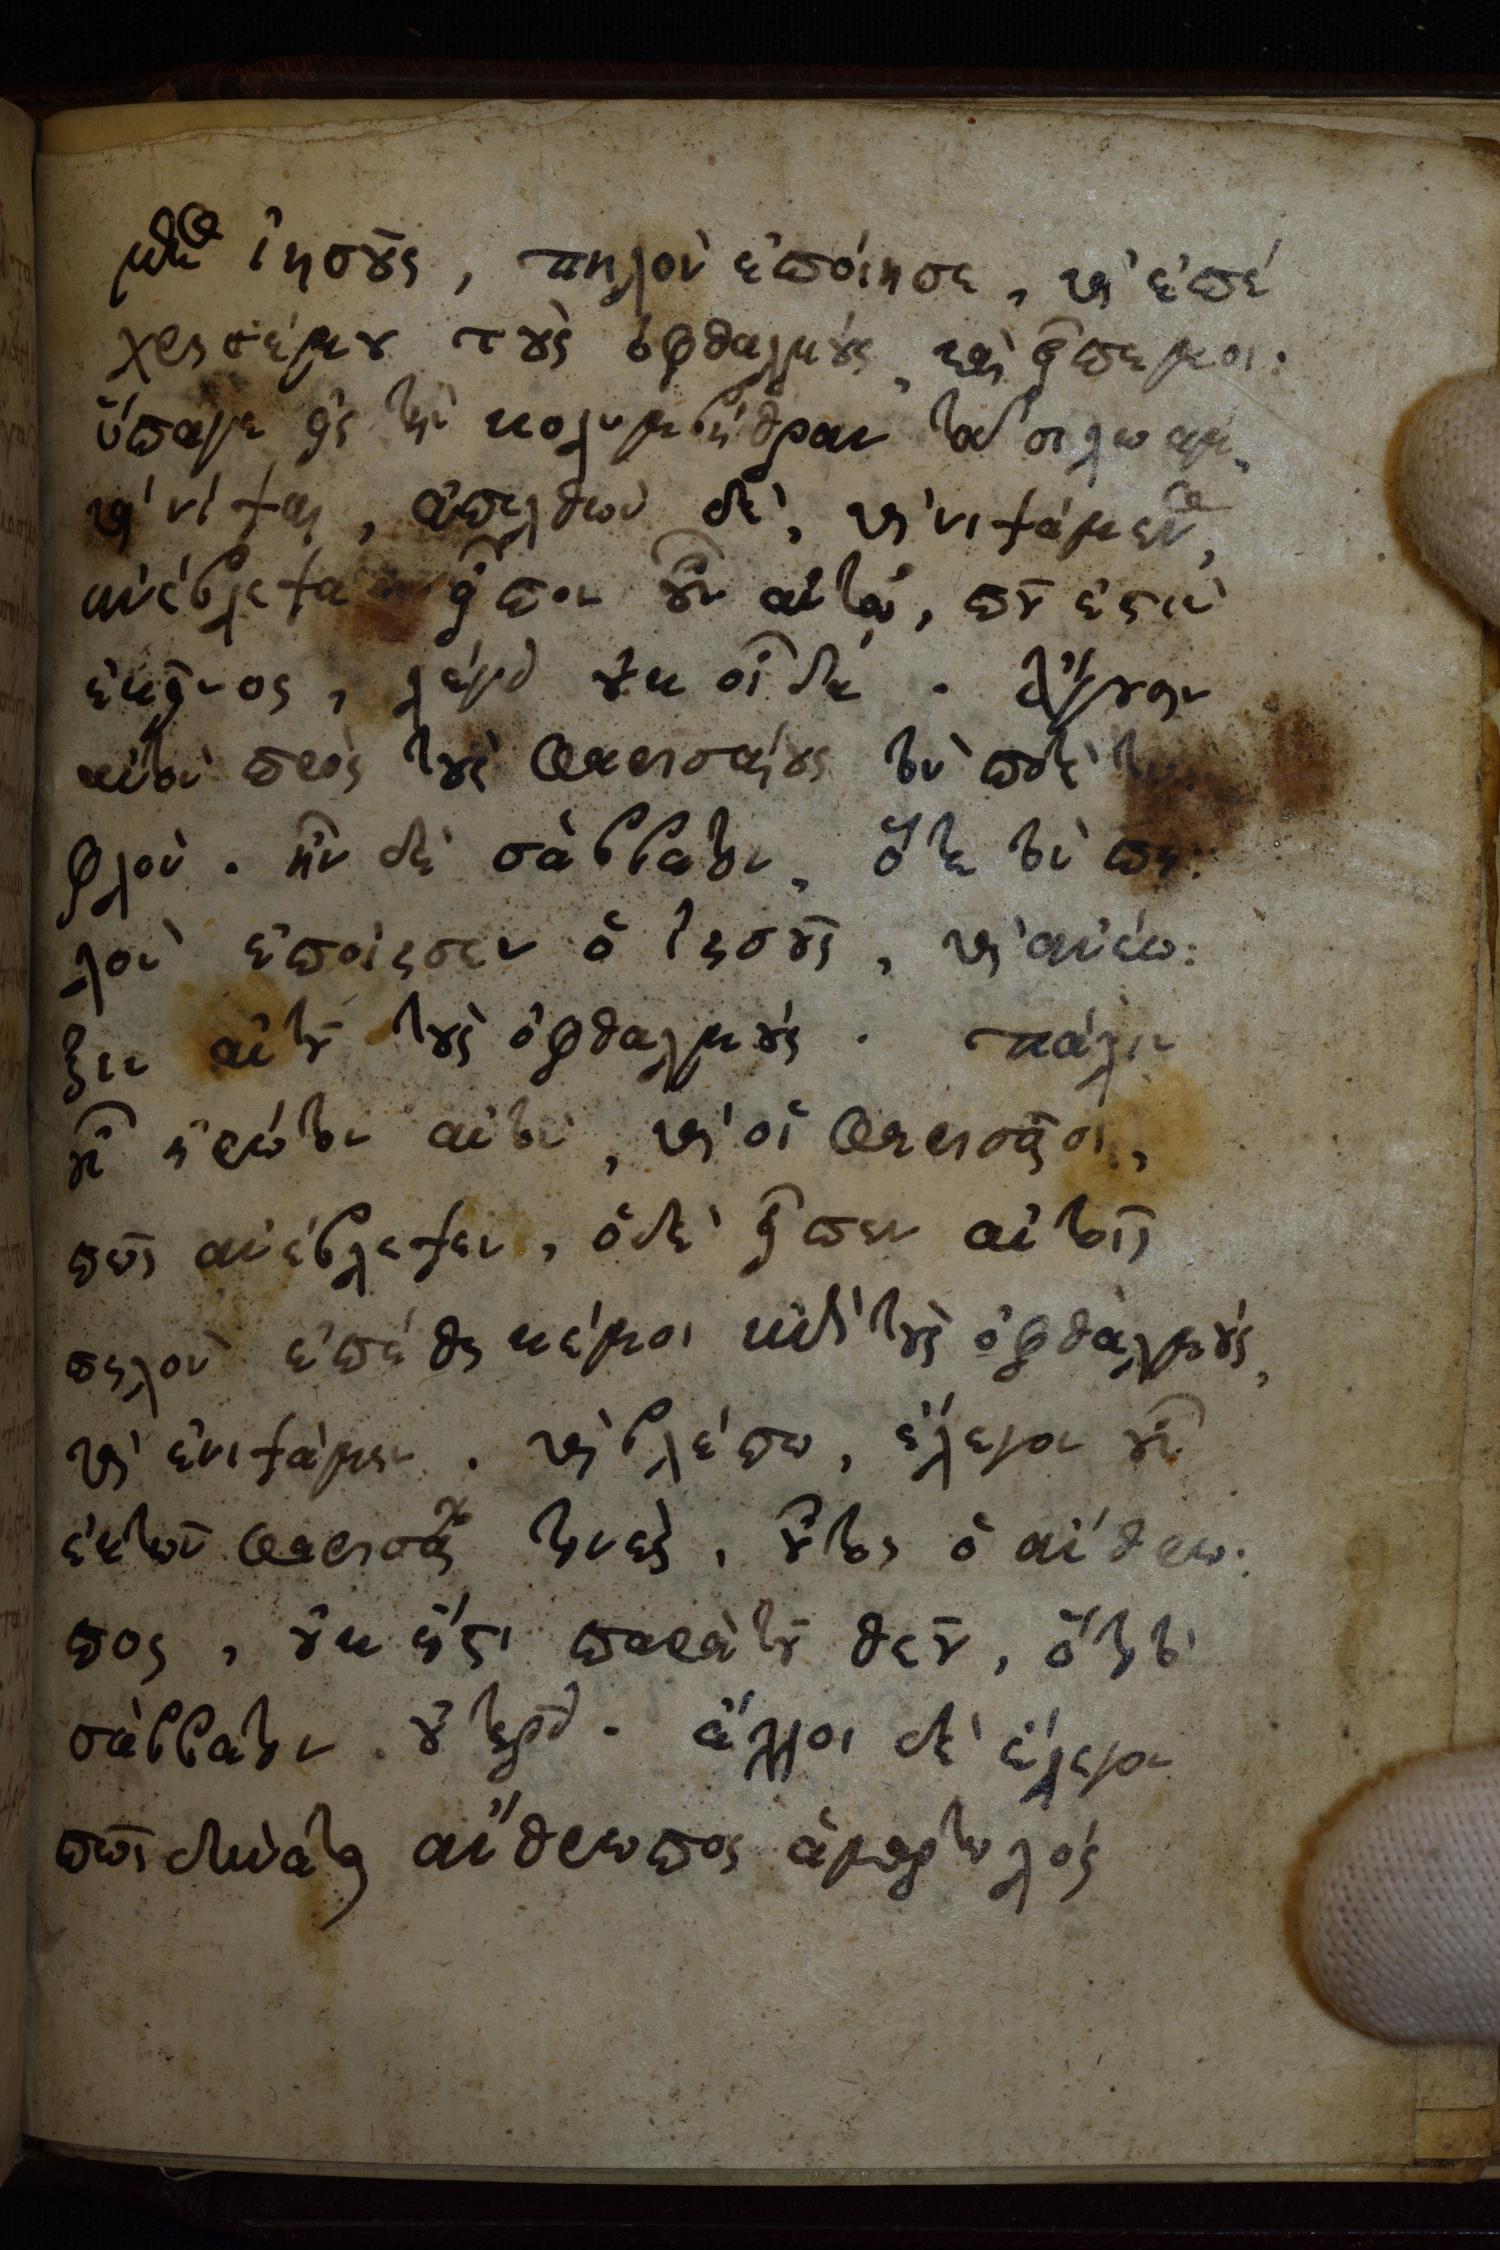 μεν(ος) ἰησοῦς, πηλὸν ἐποίησε, καὶ ἐπέ
χρισέμου τοὺς ὀφθαλμούς, καὶ εἶπεμοι:
ὕπαγε εἰς τὴν κολυμβήθραν τοῦ σιλωάμ,
καὶ νίψαι, ἀπελθὼν δὲ, καὶ νιψάμενος,
ἀνέβλεψα εἶπον οὖν αὐτῷ, ποῦ ἐστὶν
ἐκεῖνος, λέγει οὐκ οἶδα. ἄγουσιν
αὐτὸν πρὸς τοὺς φαρισαίους τὸν ποτὲ τυ
φλὸν. ἦν δὲ σάββατον, ὅτε τὸν πη:
λὸν ἐποίησεν ὁ ἰησοῦς, καὶ ἀνέω:
ξεν αὐτοῦ τοὺς ὀφθαλμούς. πάλιν
οὖν ἠρώτον αὐτὸν, καὶ οἱ φαρισαῖοι,
πῶς ἀνέβλεψεν, ὁδὲ εἶπεν αὐτοῖς
πηλὸν ἐπέθηκέμοι κατὰ τοὺς ὀφθάλμούς,
καὶ ἐνιψάμην. καὶ βλέπω, ἔλεγον οὖν
ἐκτῶν φαρισαίων τινὲς, οὗτος ὁ ἄνθρω:
πος, οὐκ ἔστι παρὰ τοῦ θεοῦ, ὅτι τὸ
σάββατον οὐ τηρεῖ. ἄλλοι δὲ ἔλεγον
πῶς δύναται ἄνθρωπος ἁμαρτωλὸς